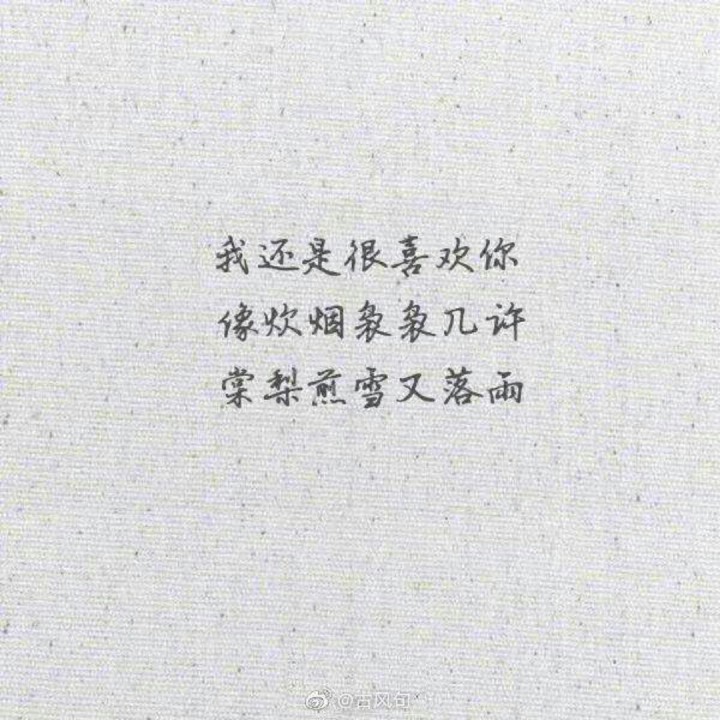 我还是很喜欢你
像炊烟袅袅几许
棠梨煎雪又落雨
@古风句